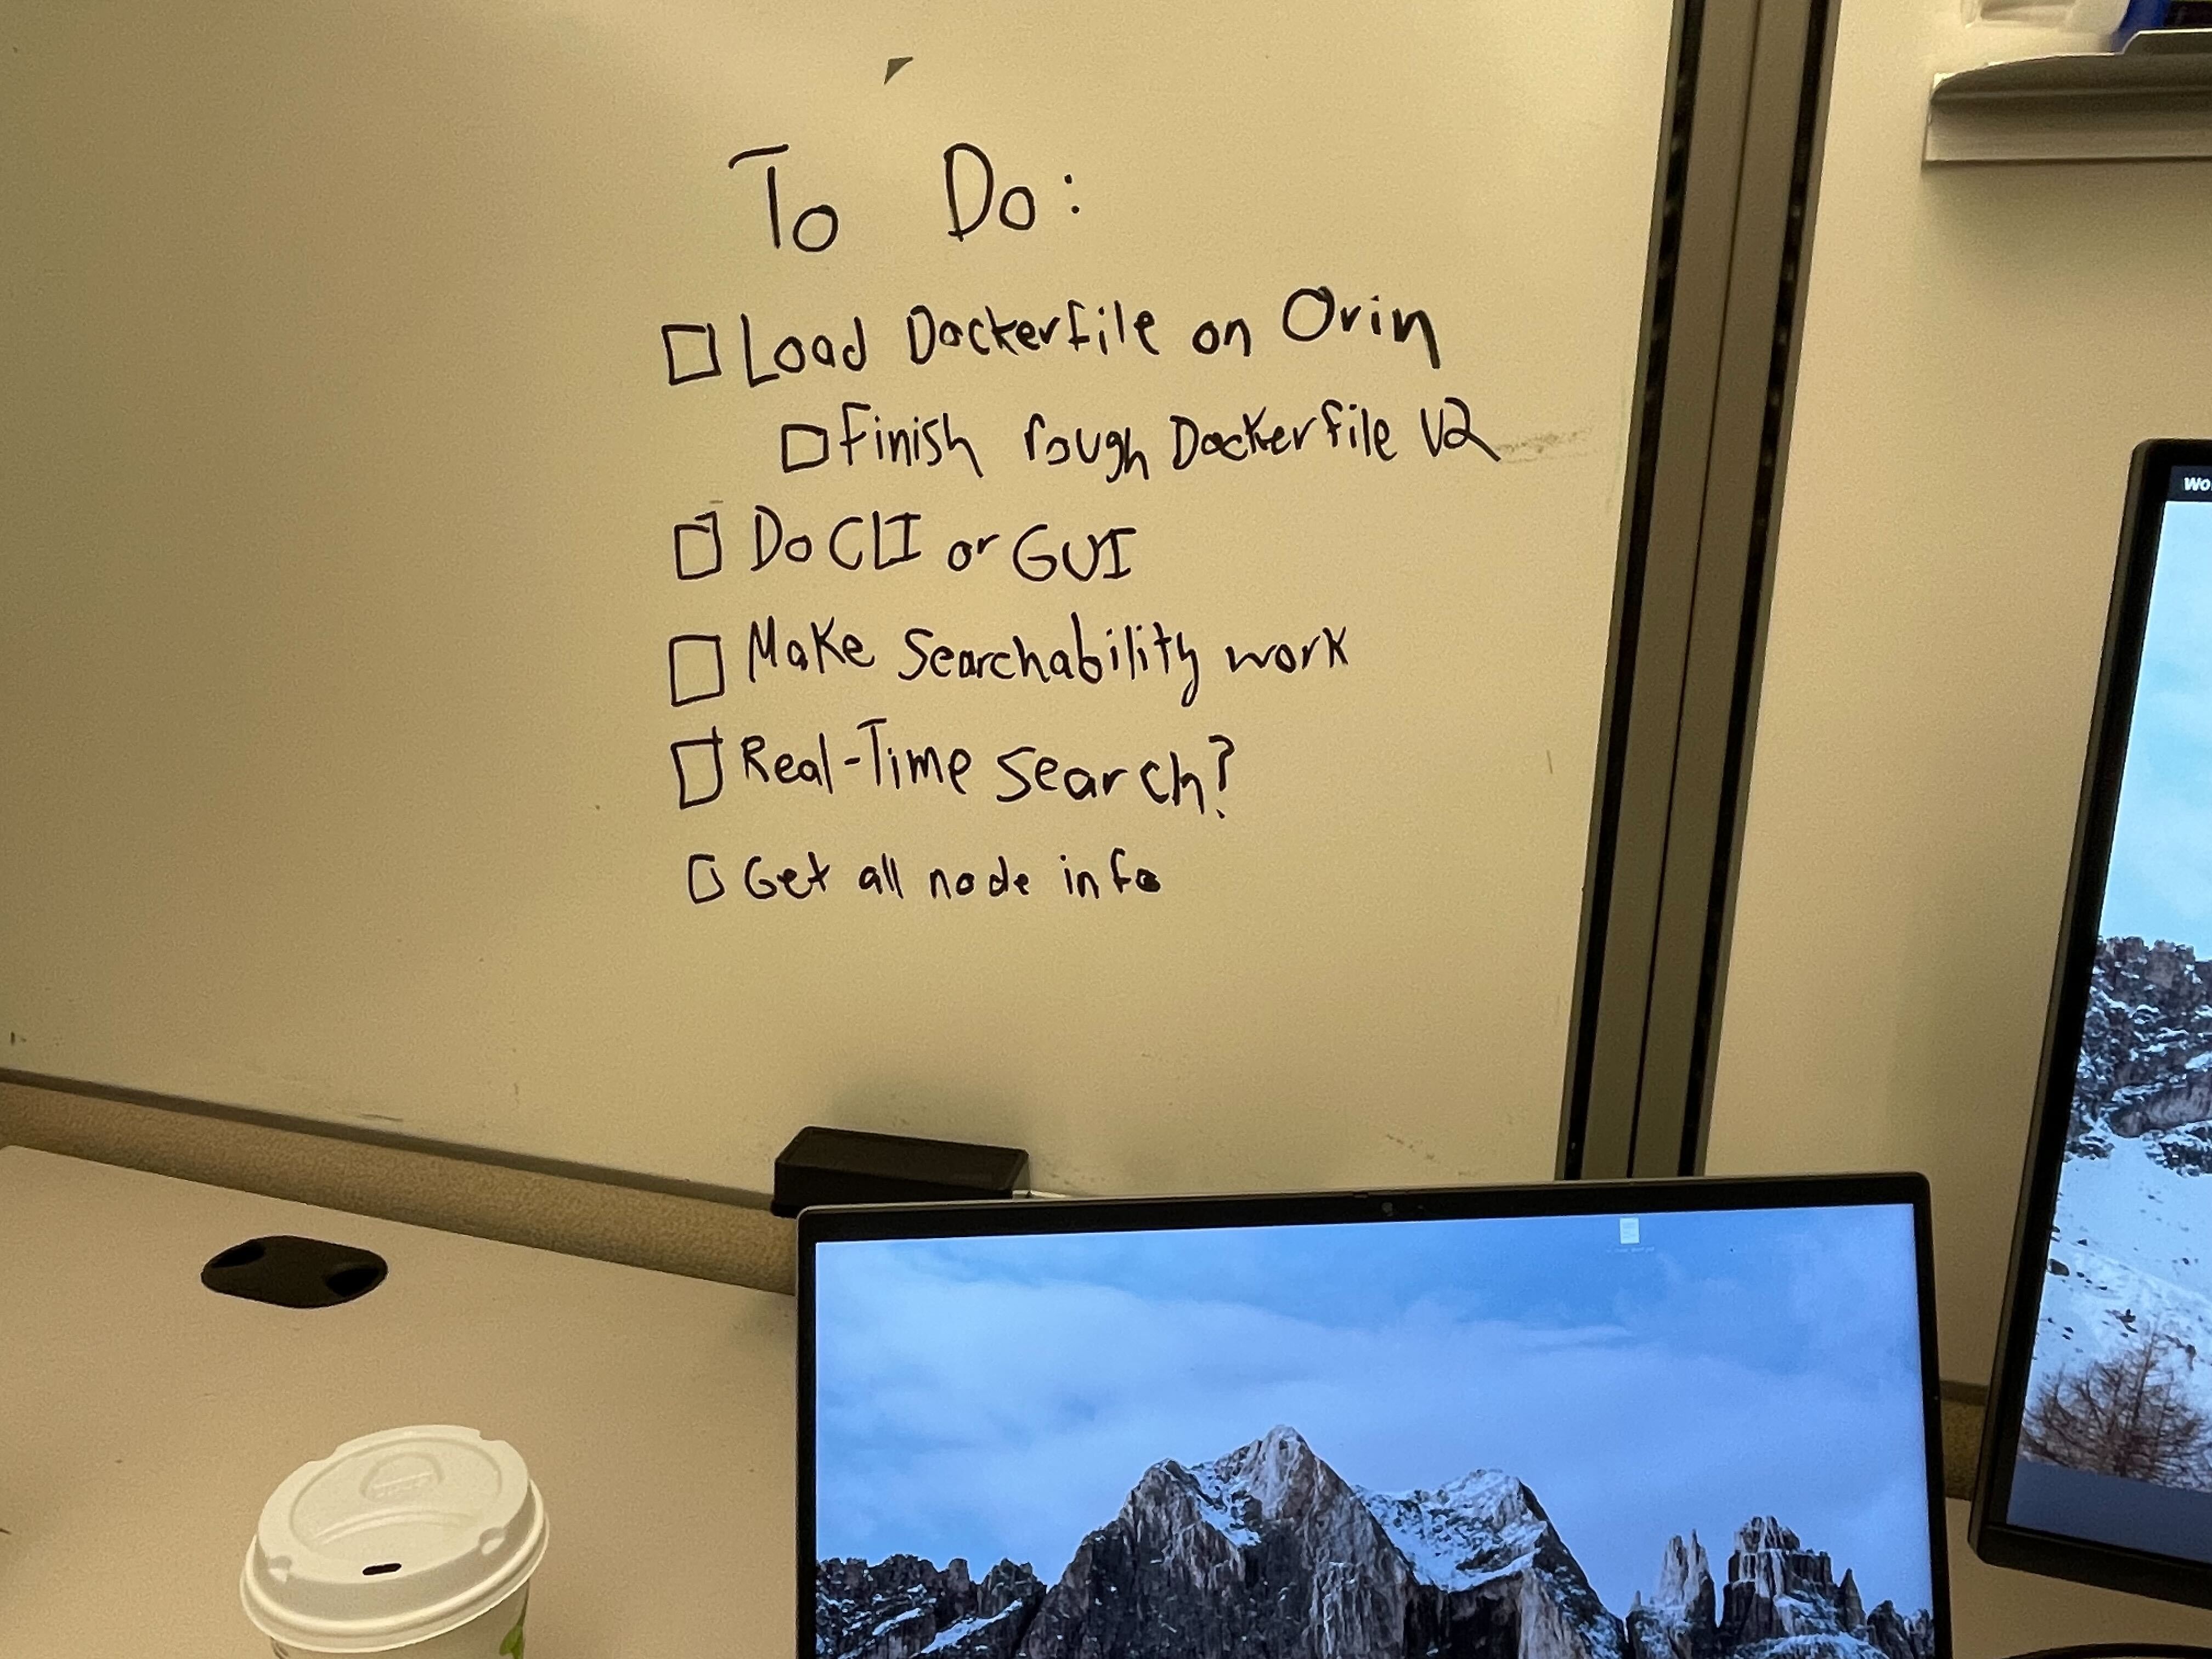 To Do:
Load Dockerfile on Orin
Finish rough Dockerfile V2
Do CLI or GUI
Make Searchability work
Real-Time Search?
Get all node info
Wo